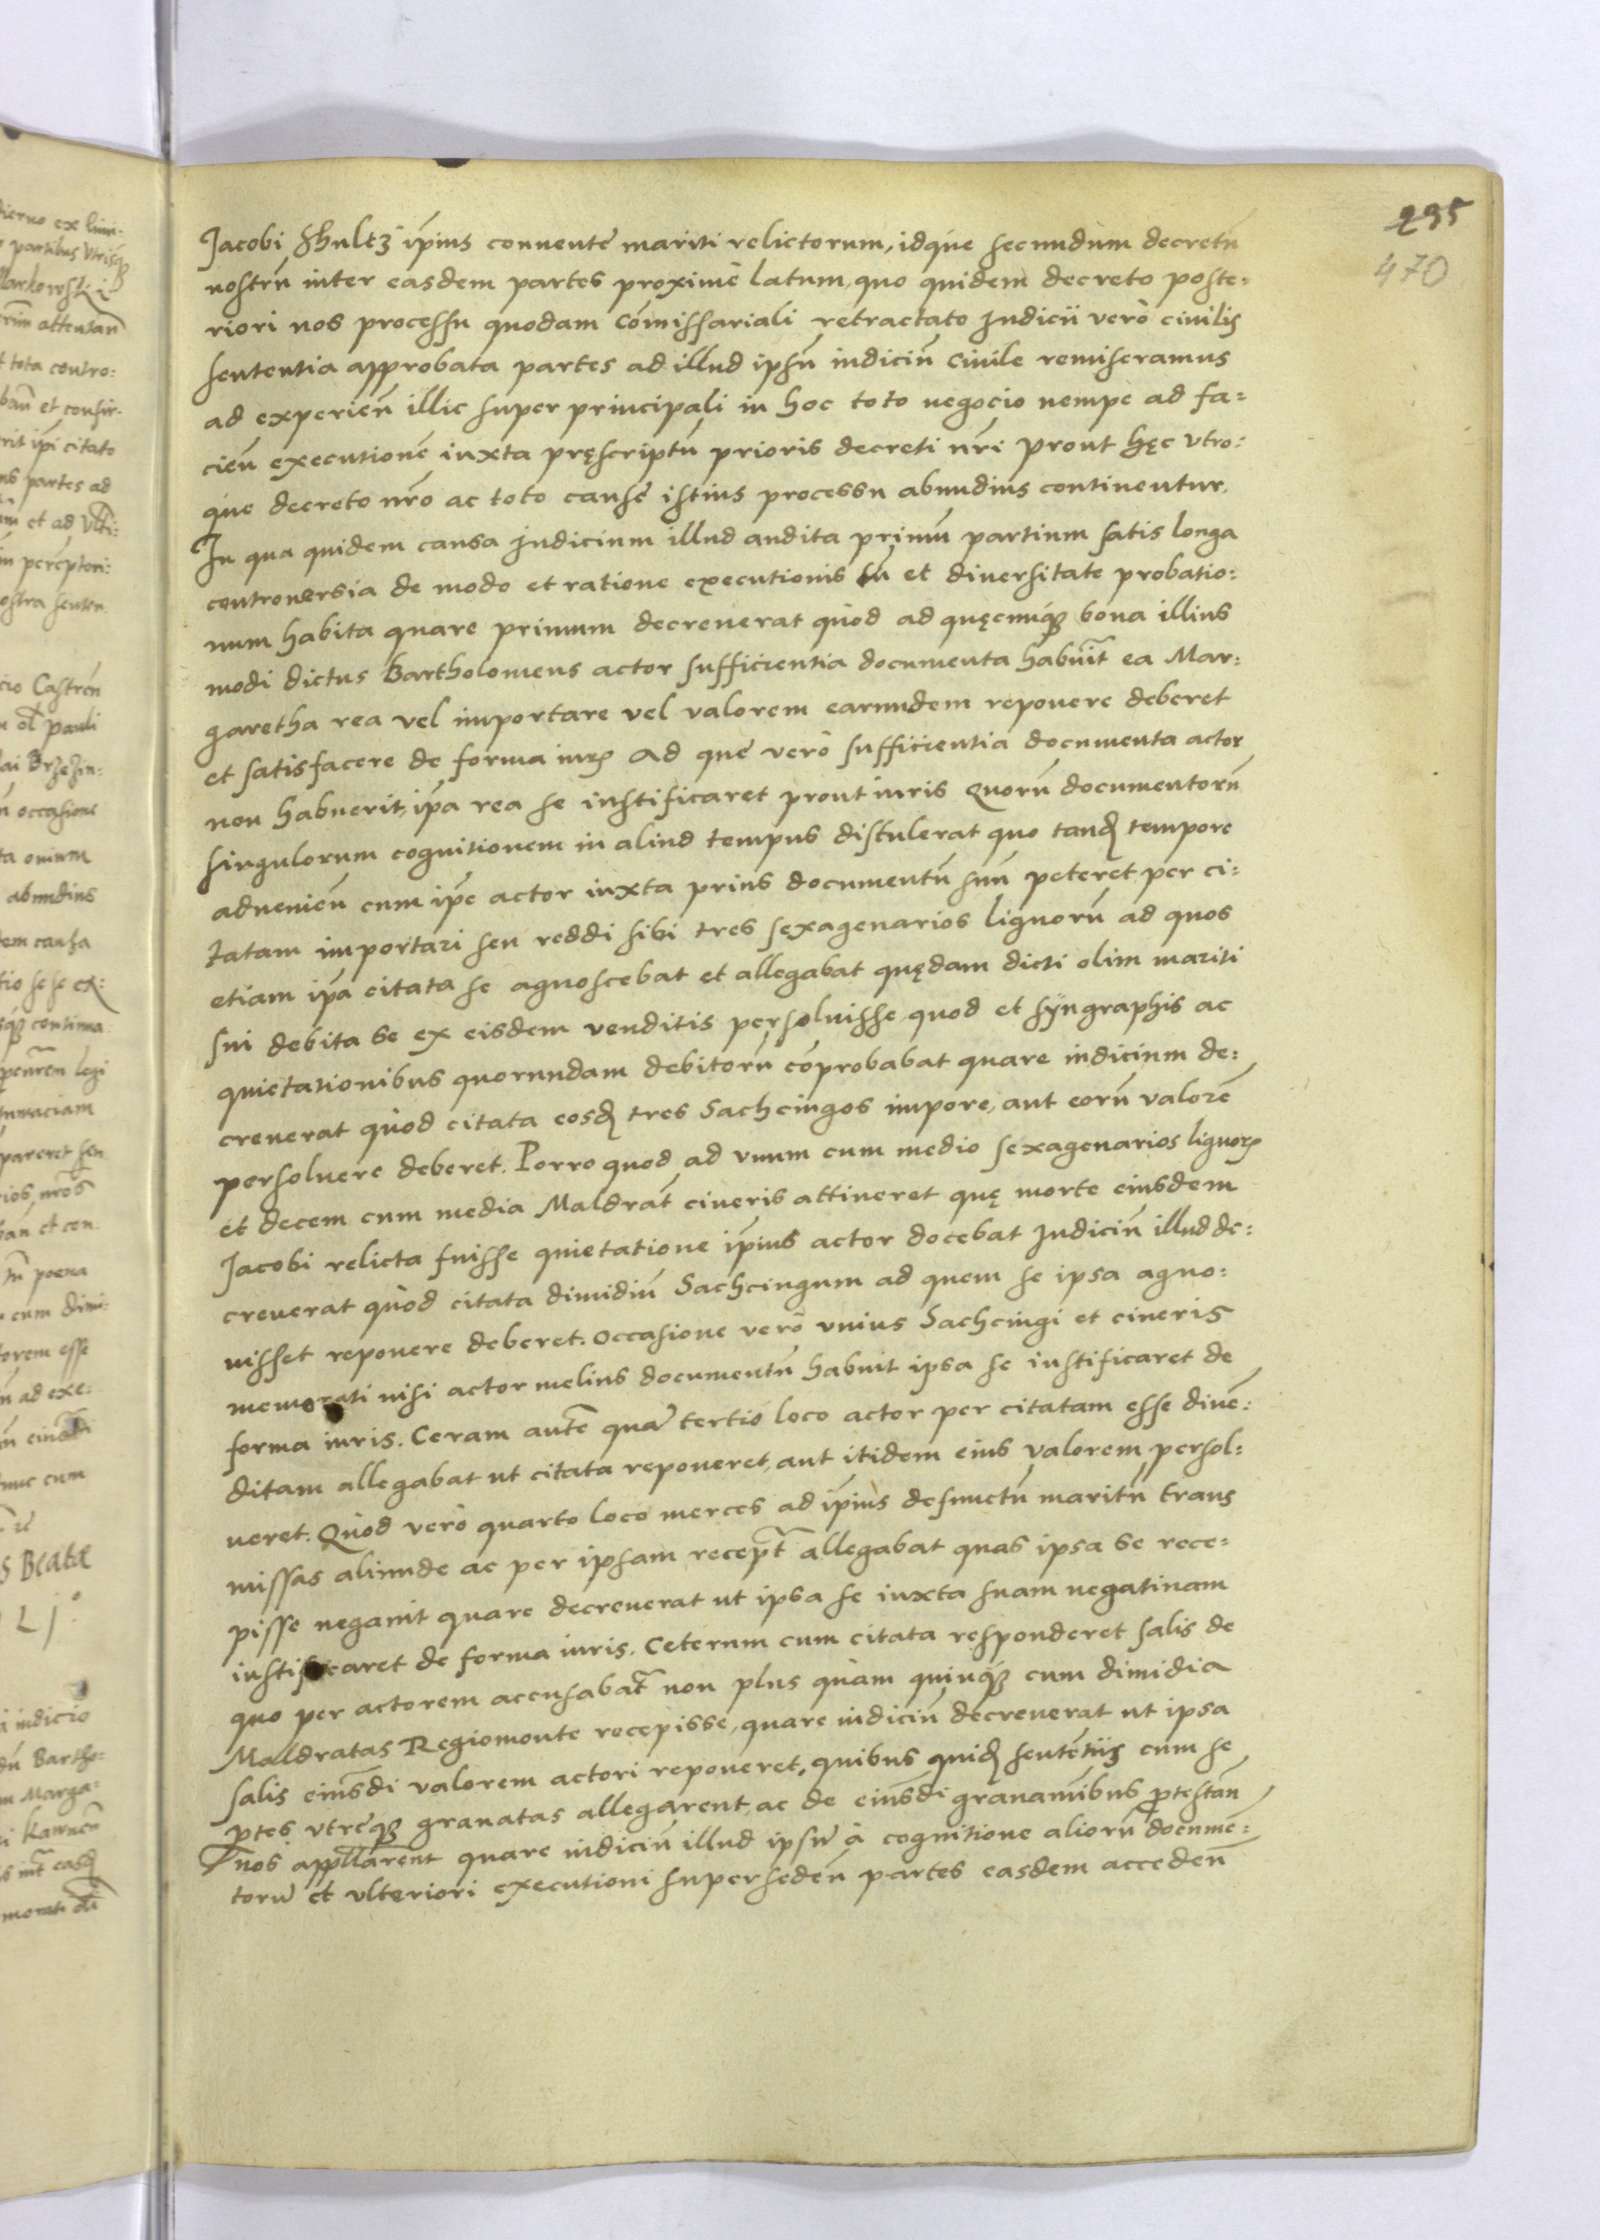 295
470
Jacobi Shultz ip̃ius conuentę mariti relictorum, idq́ue secundum decretũ
nostrũ inter easdem partes proximè latum, quo quidem decreto poste:
riori nos processu quodam com̃issariali retractato Iudicii verò ciuilis
sententia approbata partes ad illud ipsũ iudiciũ ciuile remiseramus
ad experień illic super principali in hoc toto negocio nempe ad fa:
cień executionẽ iuxta pręscriptũ prioris decreti nr̃i prout hęc vtro:
q́ue decreto nr̃o ac toto causę istius processu abundius continentur.
In qua quidem causa Iudicium illud audita primũ partium satis longa
controuersia de modo et ratione executionis tũ et diuersitate probatio:
num habita quare primum decreuerat quòd ad quęcunq́ꝫ bona illius
modi dictus Bartholomeus actor sufficientia documenta habuit̃ ea Mar:
garetha rea vel importare vel valorem earundem reponere deberet
et satisfacere de forma iurꝭ ad quę verò sufficientia documenta actor
non habuerit, ip̃a rea se iustificaret prout iuris Quorũ documentorũ
singulorum cognitionem in aliud tempus distulerat quo tandẽ tempore
adueniẽn cum ip̃e actor iuxta prius documentũ suũ peteret per ci:
tatam importari seu reddi sibi tres sexagenarios lignorũ ad quos
etiam ip̃a citata se agnoscebat et allegabat quędam dicti olim mariti
sui debita se ex eisdem venditis persoluisse quod et syngraphis ac
quietationibus quorundam debitorũ cõprobabat quare iudicium de:
creuerat quòd citata eosdẽ tres Sachcingos impore, aut eorũ valorẽ
persoluere deberet. Porro quod ad vnum cum medio sexagenarios lignorꝭ
et decem cum media Maldrat̃ cineris attineret quę morte eiusdem
Jacobi relicta fuisse quietatione ip̃ius actor docebat Iudiciũ illud de:
creuerat quòd citata dimidiũ Sachcingum ad quem se ipsa agno:
uisset reponere deberet. Occasione verò vnius Sachcingi et cineris
memorati nisi actor melius documentũ habuit ipsa se iustificaret de
forma iuris. Ceram autẽ quã tertiò loco actor per citatam esse diuẽ:
ditam allegabat ut citata reponeret, aut itidem eius valorem persol:
ueret. Quòd verò quarto loco merces ad ip̃ius defunctũ maritũ trans
missas aliunde ac per ipsam recept̃ allegabat quas ipsa se rece:
pisse negauit quare decreuerat ut ipsa se iuxta suam negatiuam
iustificaret de forma iuris. Ceterum cum citata responderet salis de
quo per actorem accusabat̃ non plus quàm quinq́ꝫ cum dimidia
Maldratas Regiomonte recepisse, quare iudiciũ decreuerat ut ipsa
salis eiusdi valorem actori reponeret, quibus quidẽ sententiis cum se
ptes vtręq́ꝫ grauatas allegarent, ac de eiusdi grauaminibus protestań
nos appellarent quare iudiciũ illud ipsũ à cognitione aliorũ documẽ:
torũ et vlteriori executioni supersedeń partes easdem accedeń